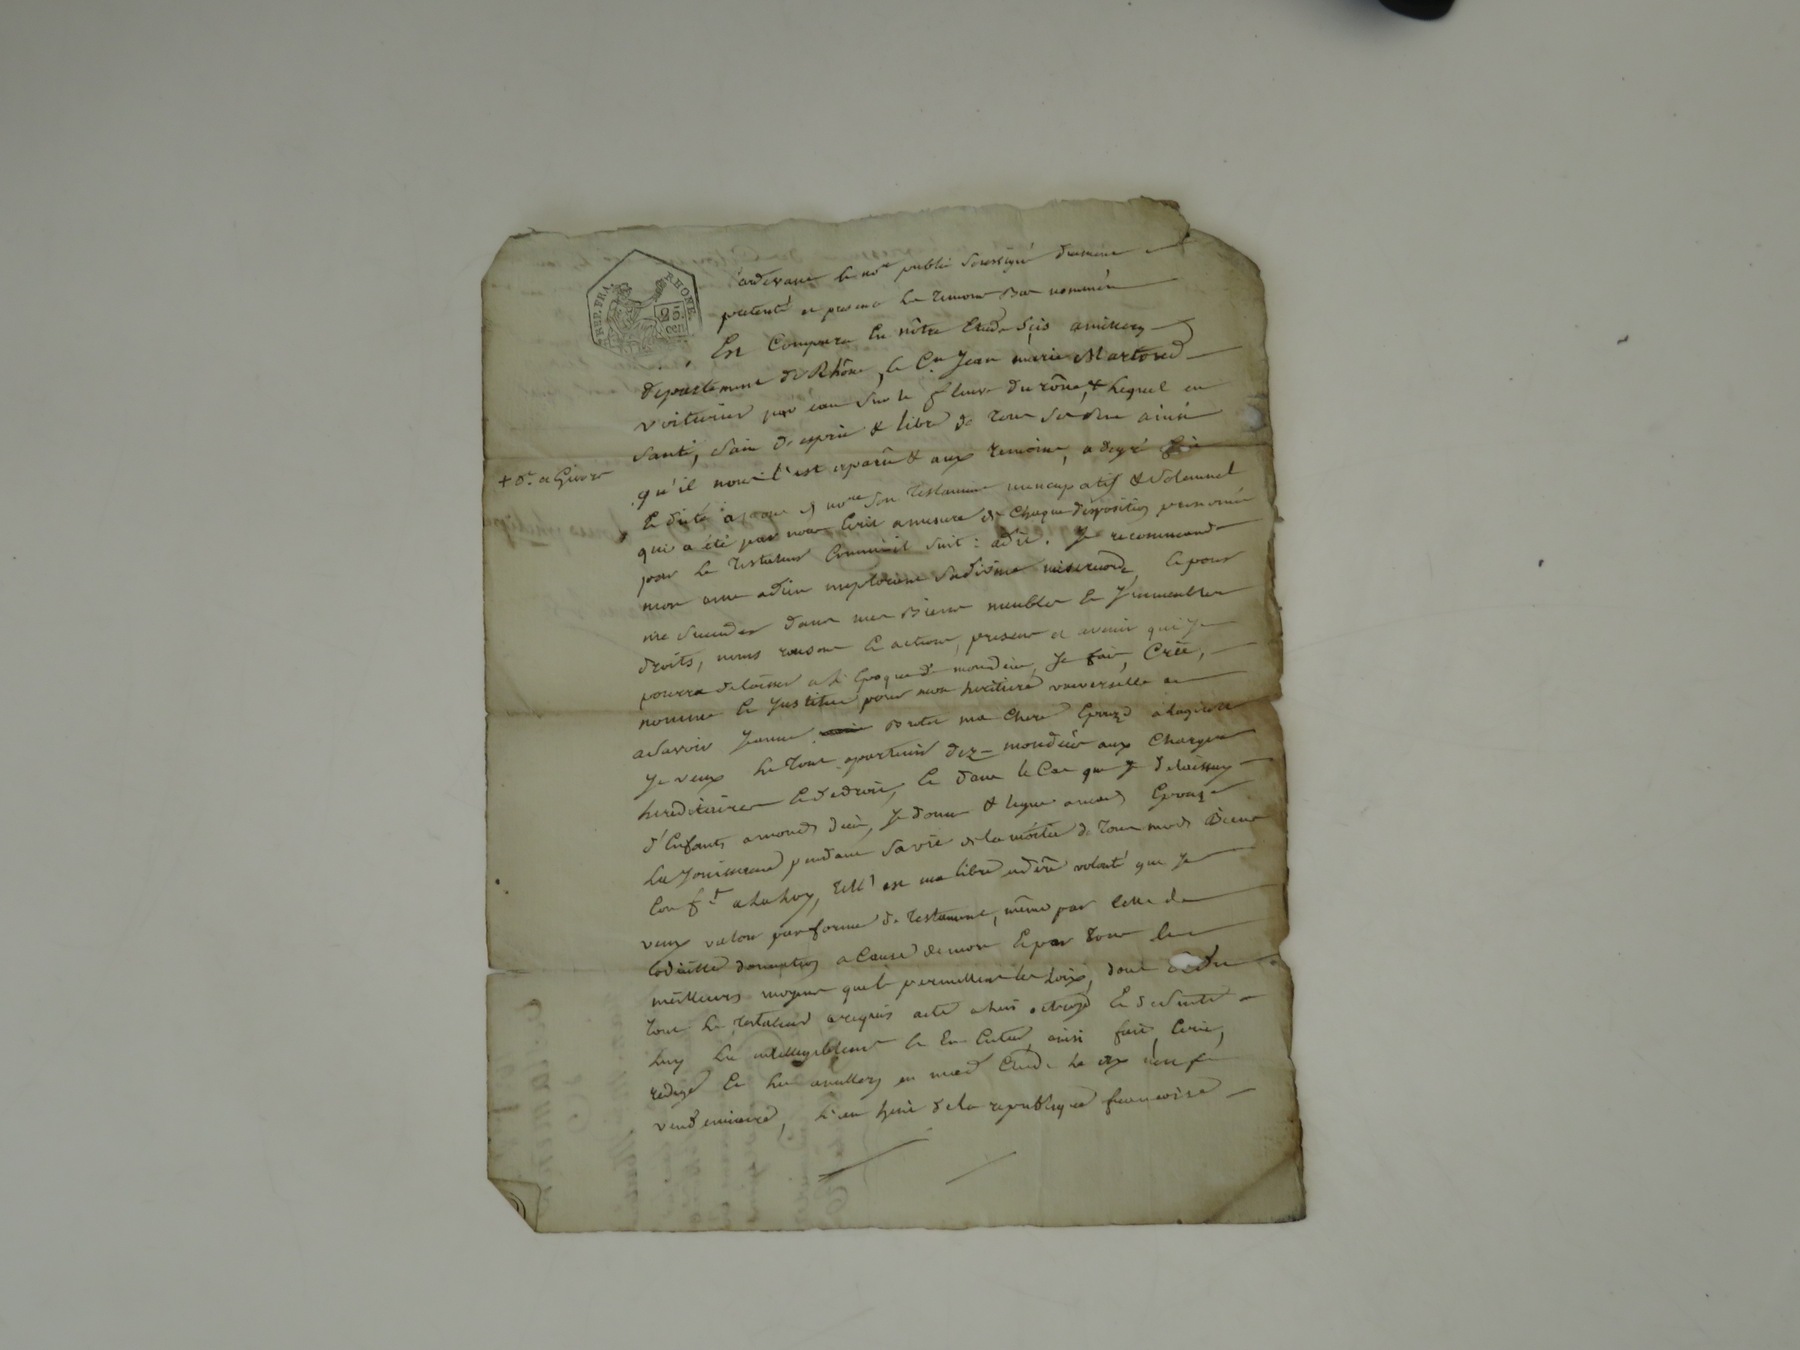 REP. FRA. RHONE. 25 cen
pardevant le no.re public soussigné
présents en presence les temoins Bas nommés
Est Comparu En nôtre Etude Sçis amillery
departement du Rhône, le C.en Jean marie Martored
voiturier par eau sur le fleuve du rône, + lequel en
santé, sain d'esprit & libre de tous ses sens ainsi
qu'il nous l'est aparû & aux temoins, a de gré
+ dt. a Givors
Et dicté a nous d. no.re Son Testament nuncupatif & Solemnel
qui a été par nous Ecrit amesure de chaque disposition prononcée
par le Testateur Comme il suit : a dit. Je recommande
mon ame a dieu implorant Sa divine misericorde, Et pour
me succeder dans mes Biens meubles Et Immeubles
droits, noms raisons Et actions, presents et avenir que je
pourrai delaisser a l'Epoque de mon decès, Je fais, Crée,
nomme Et Institue pour mon heritiere universelle
a savoir Jeanne ma chere Epouze a laquelle
Je veux le tout apartenir dez mon decès aux Charges
hereditaires Et de droit, Et dans le Cas que je delaissay
d'Enfants a mond. decès, Je donne & legue a mad. Epouze
la Jouissance pendant sa vie de la moitié de tous mesd. Biens
Conf.t a la loy, telle est ma libre et derre volonté que Je
veux valoir par forme de Testament, même par celle de
Codicille donnation a Cause de mort Et par tous les
meilleurs moyens que le permettent les loix, dont
tout le testateur a requis acte a lui octroyé Et de suite
luy lu intelligiblement Et En Entier, ainsi fait, Ecrit,
redigé Et lu a millery en mad. Etude le dix neuf
vendemiaire, l'an huit de la republique francoise